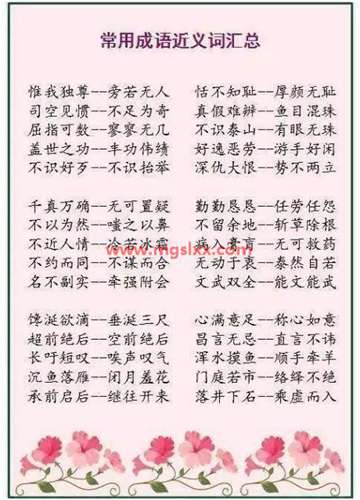 常用成语近义词汇总
惟我独尊--旁若无人 恬不知耻--厚颜无耻
司空见惯--不足为奇 真假难辨--鱼目混珠
屈指可数--寥寥无几 不识泰山--有眼无珠
盖世之功--丰功伟绩 好逸恶劳--游手好闲
不识好歹--不识抬举 深仇大恨--势不两立
千真万确--无可置疑 勤勤恳恳--任劳任怨
不以为然--嗤之以鼻 不留余地--斩草除根
不近人情--冷若冰霜 病入膏肓--无可救药
www.mgslxx.com
不约而同--不谋而合 无动于衷--泰然自若
名不副实--牵强附会 文武双全--能文能武
馋涎欲滴--垂涎三尺 心满意足--称心如意
超前绝后--空前绝后 昌言无忌--直言不讳
长吁短叹--唉声叹气 浑水摸鱼--顺手牵羊
沉鱼落雁--闭月羞花 门庭若市--络绎不绝
承前启后--继往开来 落井下石--乘虚而入